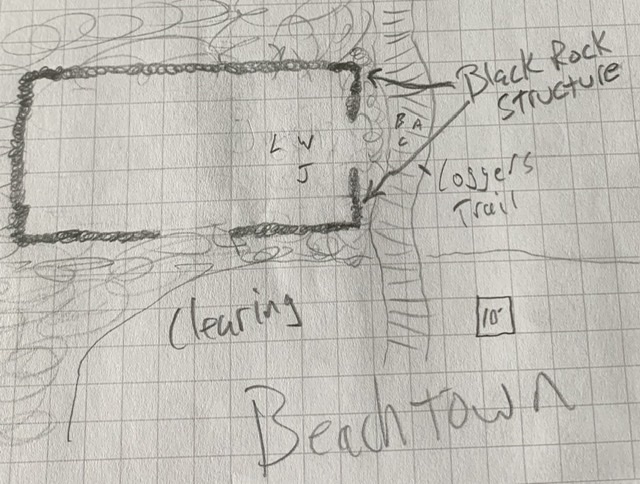 Black Rock
Structure
B A
C
L W
J
Loggers
Trail
Clearing
10'
Beachtown